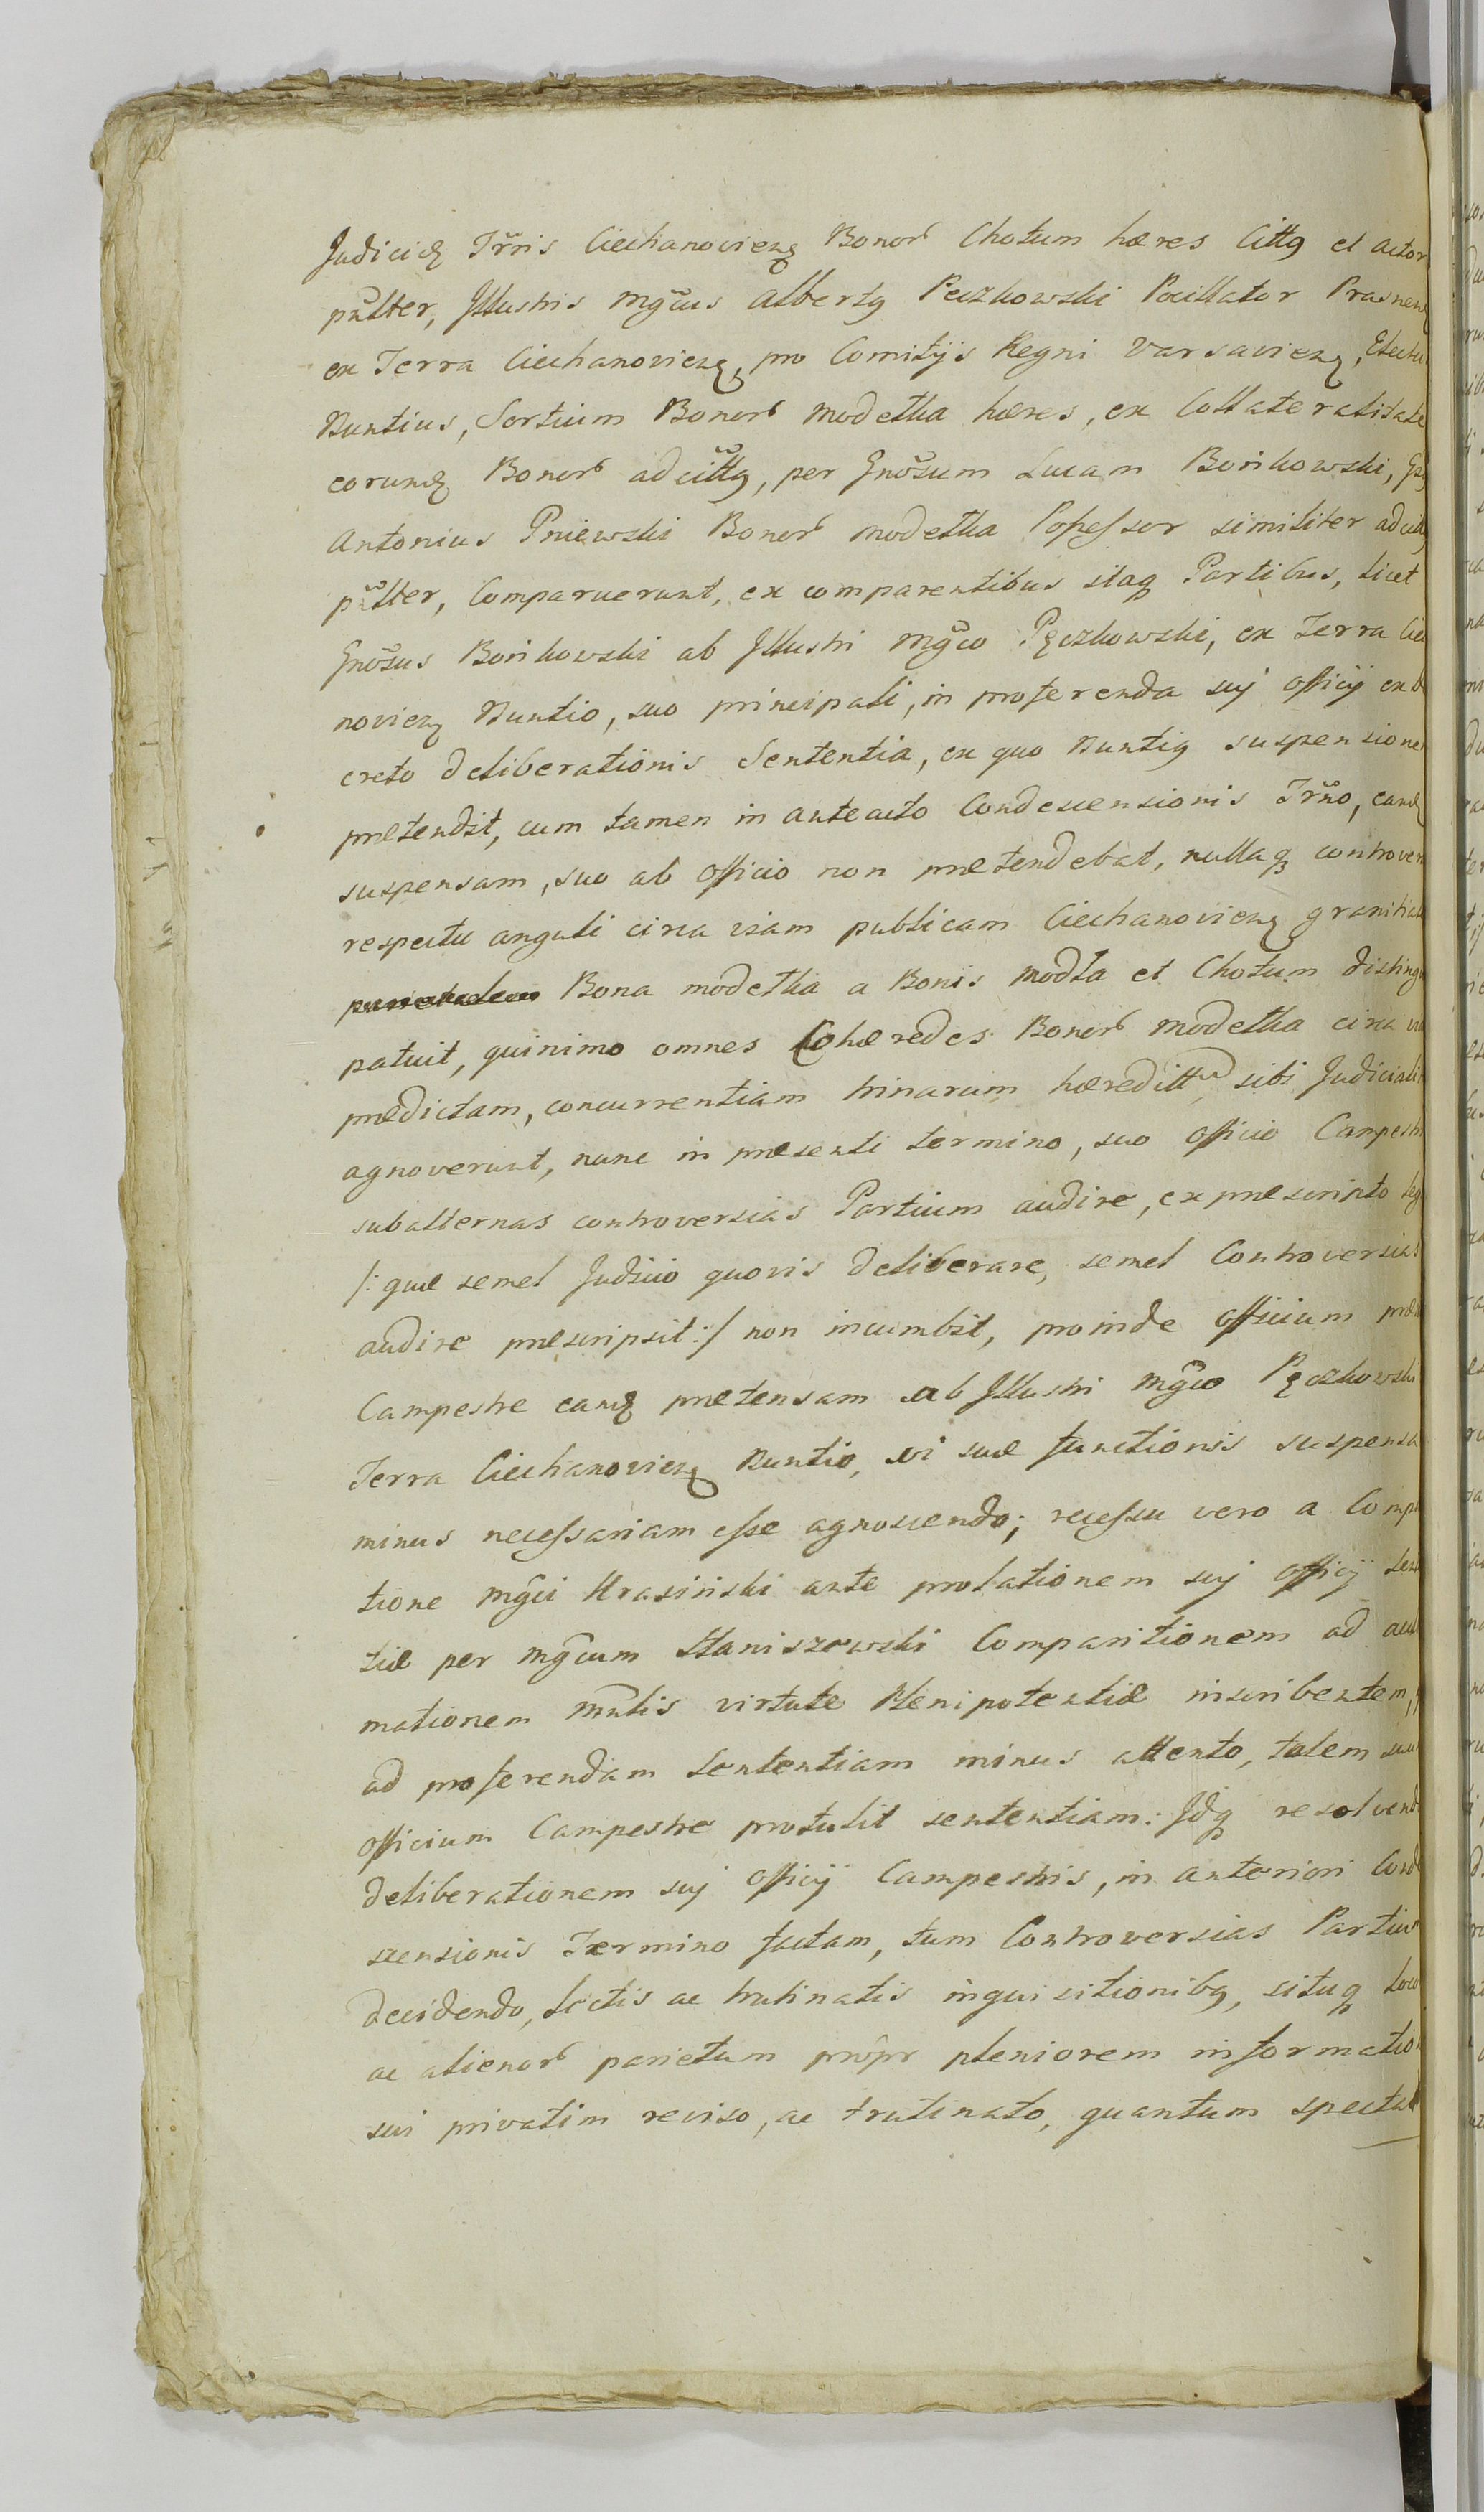 Judicię Trris Ciechanovienę Bonorũ Chotum hæres Cittq et actor
pnlter, Illustris Mgcus Albertq Peczkowski Pocillator Prasnen
ex Terra Ciechanovienę, pro Comitijs Regni Varsavienę, Electu
Nuntius, Sortium Bonorũ Modełka hæres, ex Collateralitate
eorundę Bonorũ adcittq, per Gnõsum Lucam Bońkowski, Gsq
Antonius Pniewski Bonorũ Modełka Possessor similiter adcitt
pnlter, Comparuerunt, ex comparentibus itaq Partibus, licet
Gnõsus Bońkowski ab Illustri Mgco Pęczkowski, ex Terra Cie
novienę Nuntio, suo principali, in proferenda suj officij ex de
creto deliberationis Sententia, ex quo Nuntiq suspensione
prætendit, cum tamen in anteacto Condescensionis Trno, eandę
suspensam, suo ab officio non prætendebat, nullaq controver
respectu anguli circa viam publicam Ciechanovienę granitial
Bona Modełka a Bonis Modła et Chotum disting
patuit, quinimo omnes Cohæredes Bonorũ Modełka circa vi
prædictam, concurrentiam trinarum hæreditt sibi Judiciali
agnoverunt, nunc in præsenti termino, suo officio Campestr
subalternas controversias Partium audire, ex præscripto leg
/: quæ semel Judicio quovis deliberare, semel Controversias
audire præscripsit :/ non incumbit, proinde officium præ
Campestre eandę prætensam ab Illustri Mgco Pęczkowski
Terra Ciechanovienę Nuntio, vi suæ functionis suspensa
minus necessariam esse agnoscendo; recessu vero a Comp
tione Mgci Krasiński ante prolationem suj officij Sen
tiæ per Mgcum Staniszewski Comparitionem ad
mationem Mntis virtute Plenipotentiæ inscribentem,
ad proferendam Sententiam minus attento, talem suu
officium Campestre protulit sententiam: Idq resolvend
deliberationem suj officij Campestris, in anteriori Conde
scensionis Termino factam, tum Controversias Partium
decidendo, lectis ac trutinatis inquisitionibq, situq loco
ac alienorũ parietum propr pleniorem informatio
sui privatim reviso, ac trutinato, quantum spectat